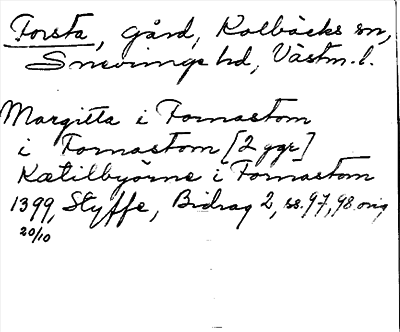 Forsta, gård, Kolbäcks sn,
Snevinge hd, Västm. l.
Margitta i Fornastom
i Fornastom [2 ggr]
Kætilbyörne i Fornastom
1399, Styffe, Bidrag 2, ss. 97, 98 orig
20/10